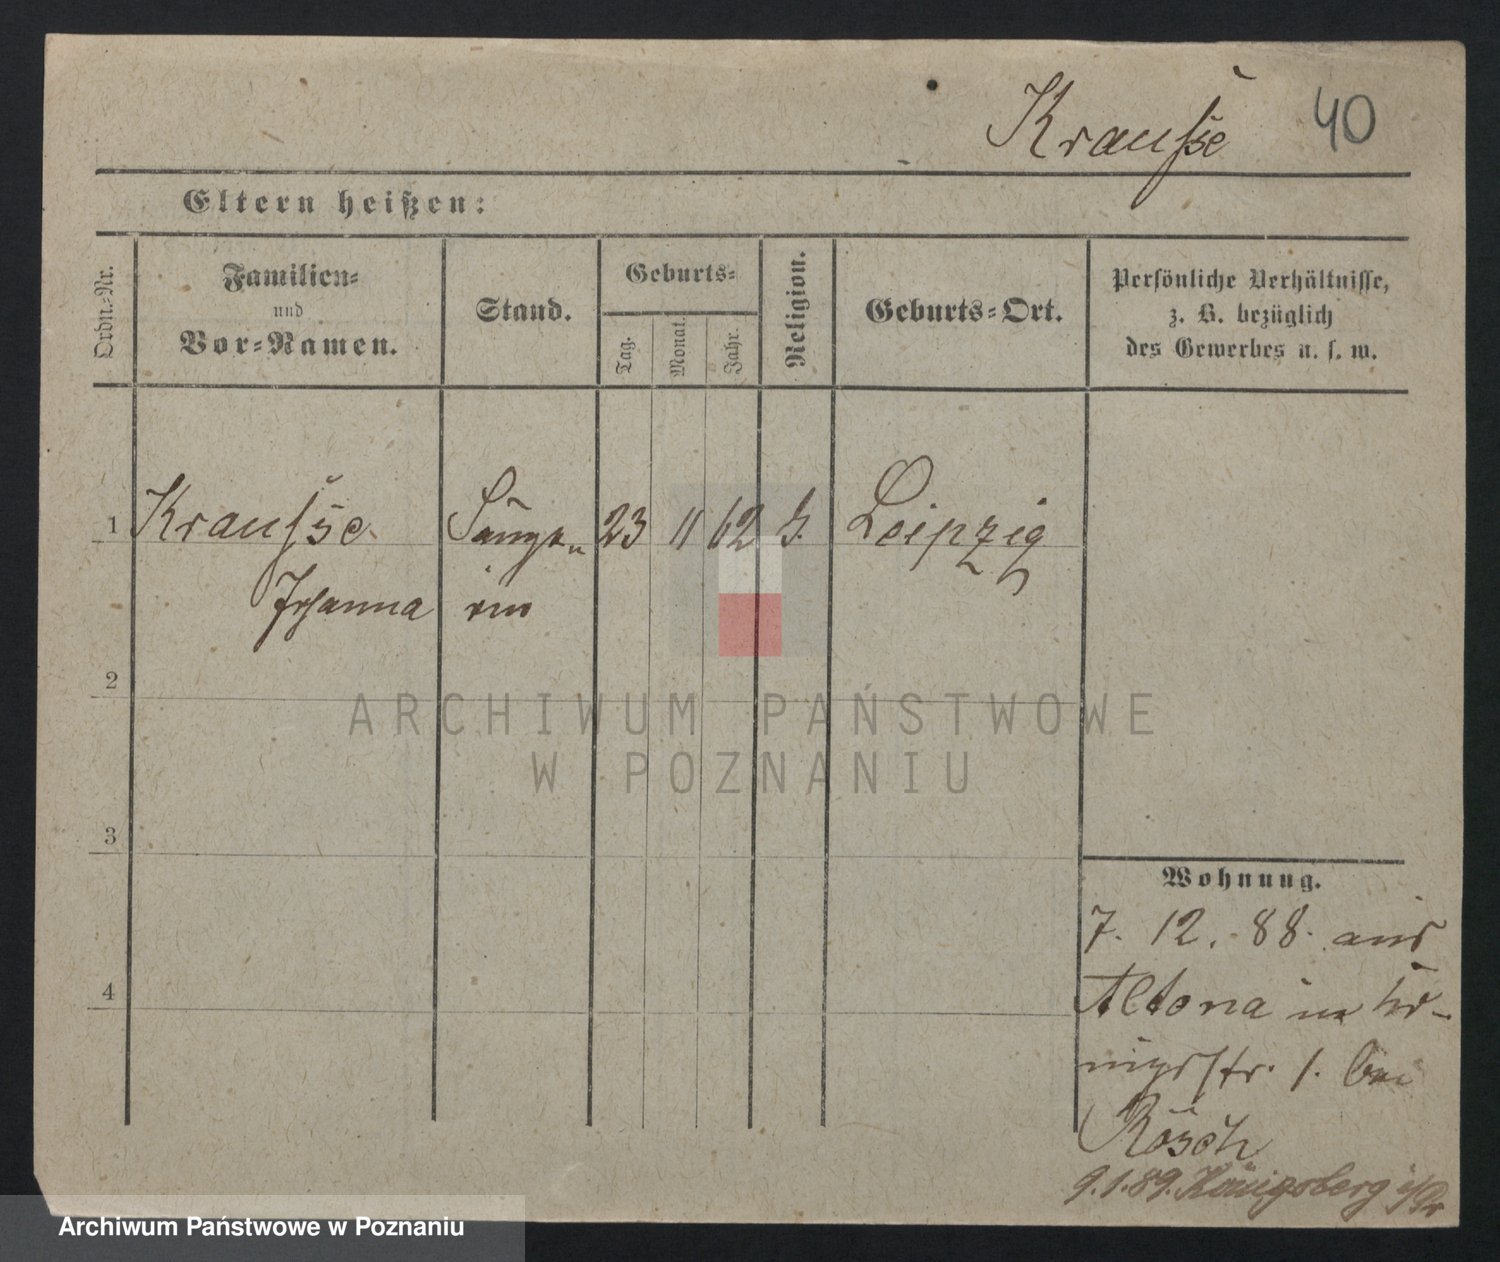 Krausse 40
Eltern heißen:
Ordn.-Nr.
Familien-
und
Vor-Namen.
Stand.
Geburts-
Tag.
Monat.
Jahr.
Religion.
Geburts-Ort.
Persönliche Verhältnisse,
z. B. bezüglich
des Gewerbes u. s. w.
1 Krausse Sänger- 23 11 62 Leipzig
Johanna in
2
3
4
Wohnung.
7. 12. 88. aus
Altona in Kö-
nigsstr. 1. bei
Rösch
9.1.89. Königsberg i/Pr
ARCHIWUM PAŃSTWOWE
W POZNANIU
Archiwum Państwowe w Poznaniu